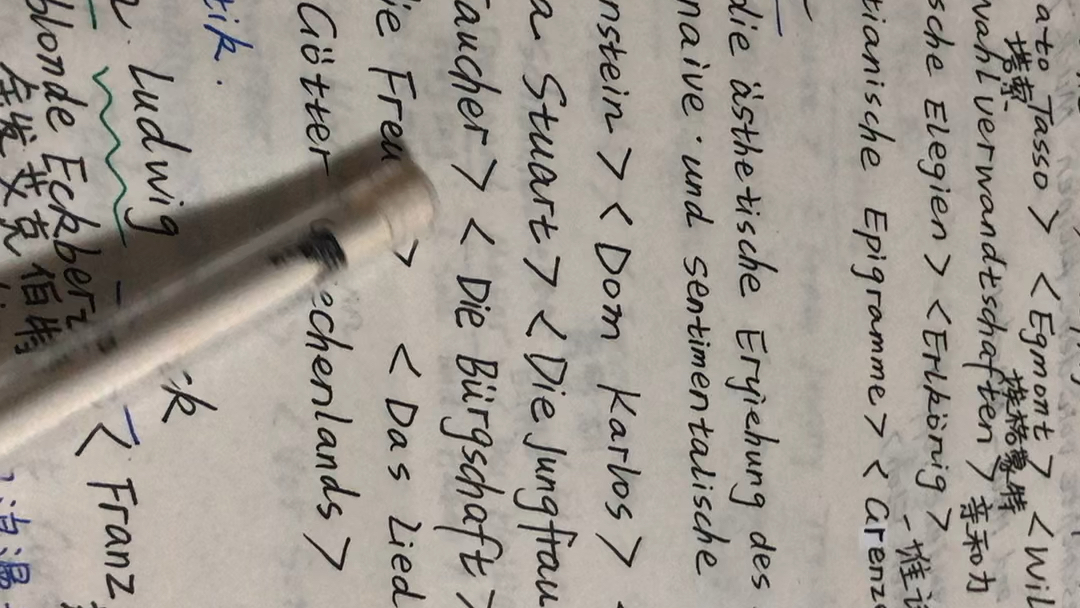 ato Tasso > < Egmont > < Wil
塔索 埃格蒙特
wahlverwandtschaften > 亲和力
sche Elegien > < Erlkönig >
tianische Epigramme > < Grenz
die ästhetische Eryiehung des
naive und sentimentalische
nstein > < Dom Karlos > <
a Stuart > < Die Jungfrau
aucher > < Die Bürgschaft >
ie Freu > < Das Lied
Götter echenlands >
tik.
Ludwig ck
< Franz
blonde Eckbert
金发艾克伯特